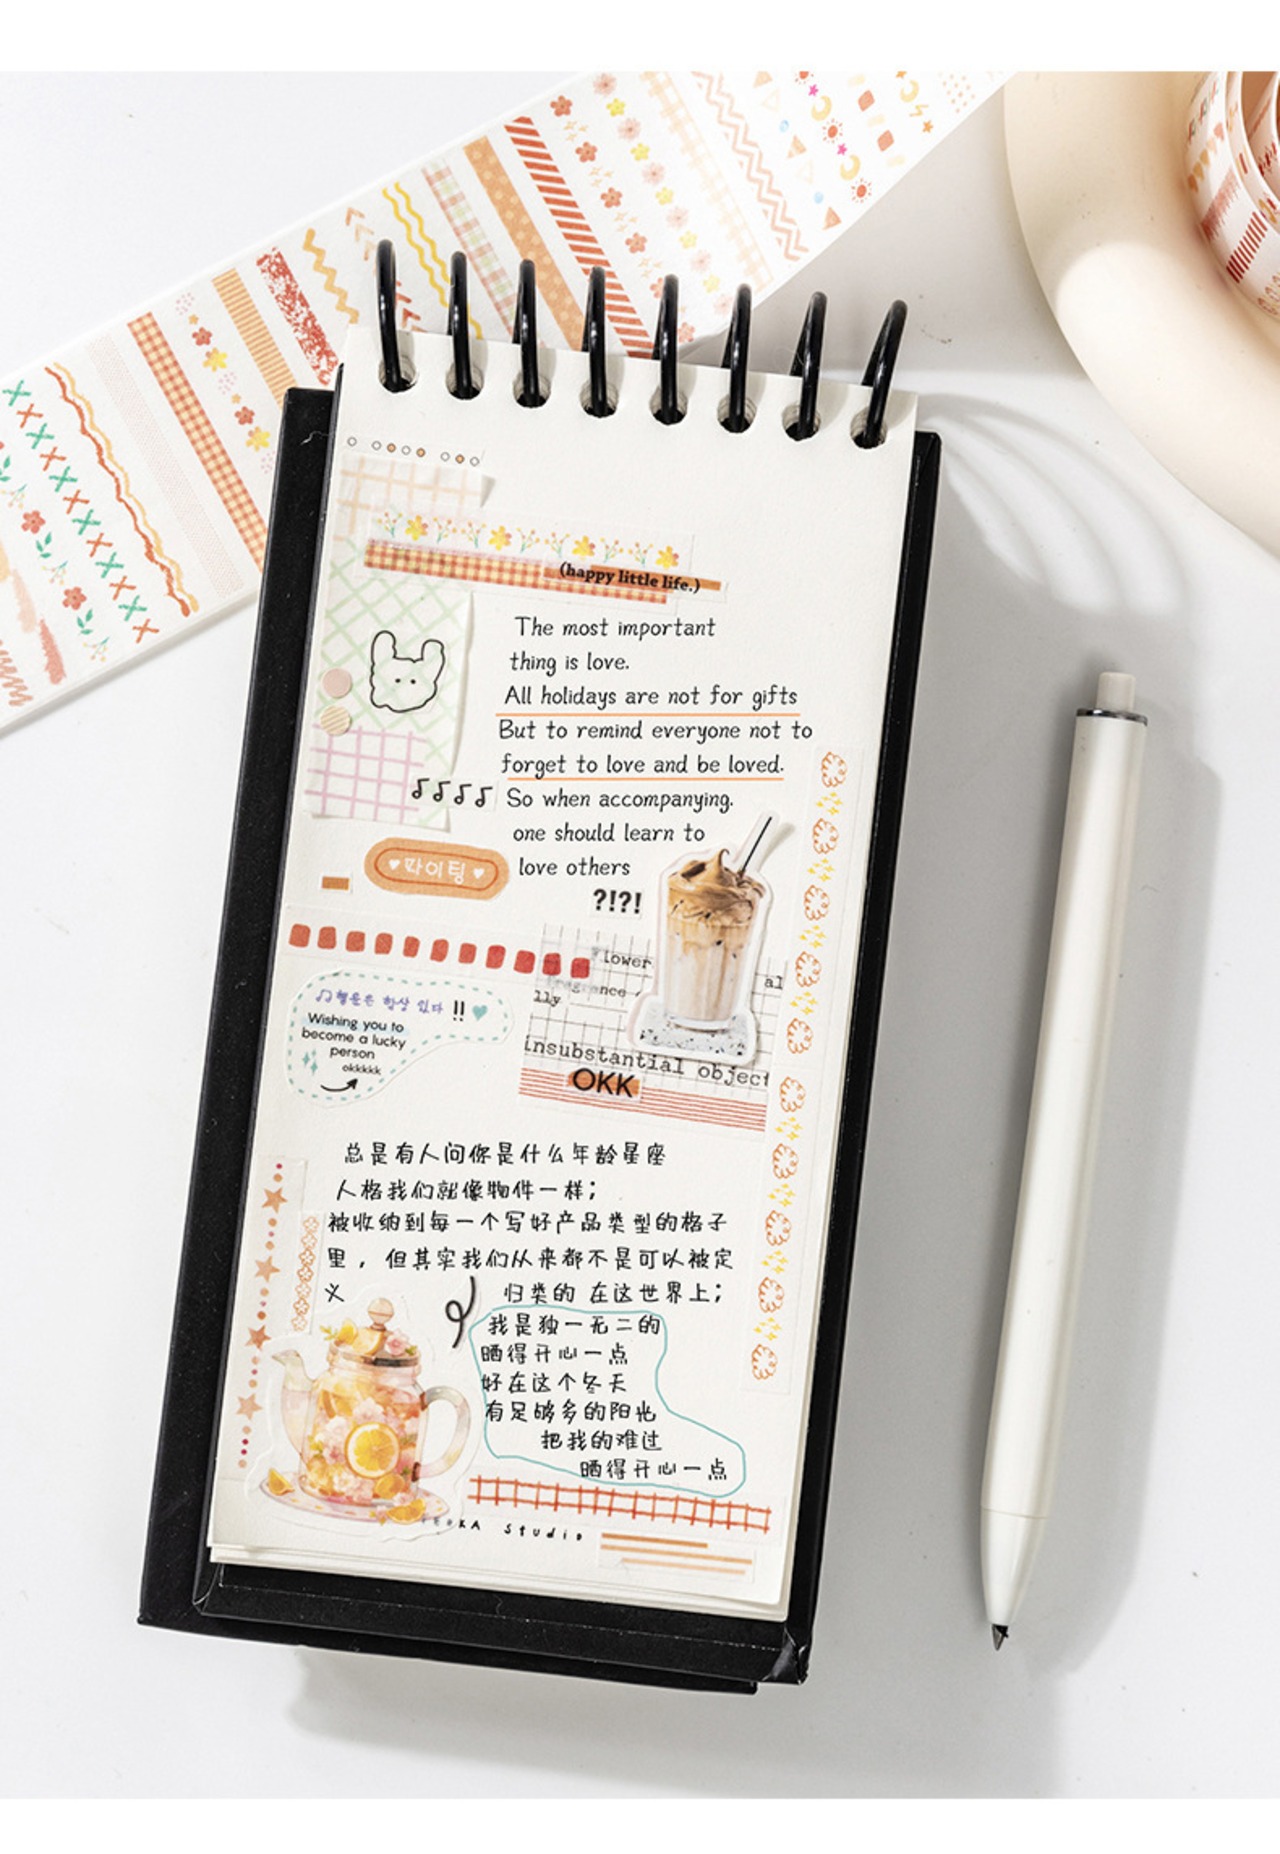 (happy little life.)
The most important
thing is love.
All holidays are not for gifts
But to remind everyone not to
forget to love and be loved.
So when accompanying.
one should learn to
love others
파이팅
?!?!
Flower
al
lly
insubstantial object
OKK
행운은 항상 있다 !!
Wishing you to
become a lucky
person
okkkkk
总是有人问你是什么年龄星座
人格我们就像物件一样;
被收纳到每一个写好产品类型的格子
里，但其实我们从来都不是可以被定
义 归类的 在这世界上;
我是独一无二的
晒得开心一点
好在这个冬天
有足够多的阳光
把我的难过
晒得开心一点
Studio